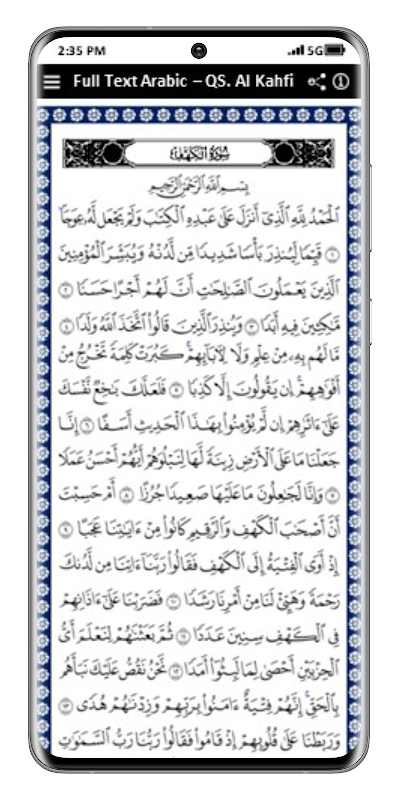 2:35 PM 5G
Full Text Arabic – QS. Al Kahfi
سُورَةُ الكَهْفِ
بِسْمِ اللَّهِ الرَّحْمَٰنِ الرَّحِيمِ
الْحَمْدُ لِلَّهِ الَّذِي أَنزَلَ عَلَىٰ عَبْدِهِ الْكِتَابَ وَلَمْ يَجْعَل لَّهُ عِوَجًا ۜ
١ قَيِّمًا لِّيُنذِرَ بَأْسًا شَدِيدًا مِّن لَّدُنْهُ وَيُبَشِّرَ الْمُؤْمِنِينَ
الَّذِينَ يَعْمَلُونَ الصَّالِحَاتِ أَنَّ لَهُمْ أَجْرًا حَسَنًا ٢
مَّاكِثِينَ فِيهِ أَبَدًا ٣ وَيُنذِرَ الَّذِينَ قَالُوا اتَّخَذَ اللَّهُ وَلَدًا ٤
مَّا لَهُم بِهِ مِنْ عِلْمٍ وَلَا لِآبَائِهِمْ ۚ كَبُرَتْ كَلِمَةً تَخْرُجُ مِنْ
أَفْوَاهِهِمْ ۚ إِن يَقُولُونَ إِلَّا كَذِبًا ٥ فَلَعَلَّكَ بَاخِعٌ نَّفْسَكَ
عَلَىٰ آثَارِهِمْ إِن لَّمْ يُؤْمِنُوا بِهَٰذَا الْحَدِيثِ أَسَفًا ٦ إِنَّا
جَعَلْنَا مَا عَلَى الْأَرْضِ زِينَةً لَّهَا لِنَبْلُوَهُمْ أَيُّهُمْ أَحْسَنُ عَمَلًا
٧ وَإِنَّا لَجَاعِلُونَ مَا عَلَيْهَا صَعِيدًا جُرُزًا ٨ أَمْ حَسِبْتَ
أَنَّ أَصْحَابَ الْكَهْفِ وَالرَّقِيمِ كَانُوا مِنْ آيَاتِنَا عَجَبًا ٩
إِذْ أَوَى الْفِتْيَةُ إِلَى الْكَهْفِ فَقَالُوا رَبَّنَا آتِنَا مِن لَّدُنكَ
رَحْمَةً وَهَيِّئْ لَنَا مِنْ أَمْرِنَا رَشَدًا ١٠ فَضَرَبْنَا عَلَىٰ آذَانِهِمْ
فِي الْكَهْفِ سِنِينَ عَدَدًا ١١ ثُمَّ بَعَثْنَاهُمْ لِنَعْلَمَ أَيُّ
الْحِزْبَيْنِ أَحْصَىٰ لِمَا لَبِثُوا أَمَدًا ١٢ نَّحْنُ نَقُصُّ عَلَيْكَ نَبَأَهُم
بِالْحَقِّ ۚ إِنَّهُمْ فِتْيَةٌ آمَنُوا بِرَبِّهِمْ وَزِدْنَاهُمْ هُدًى ١٣
وَرَبَطْنَا عَلَىٰ قُلُوبِهِمْ إِذْ قَامُوا فَقَالُوا رَبُّنَا رَبُّ السَّمَاوَاتِ